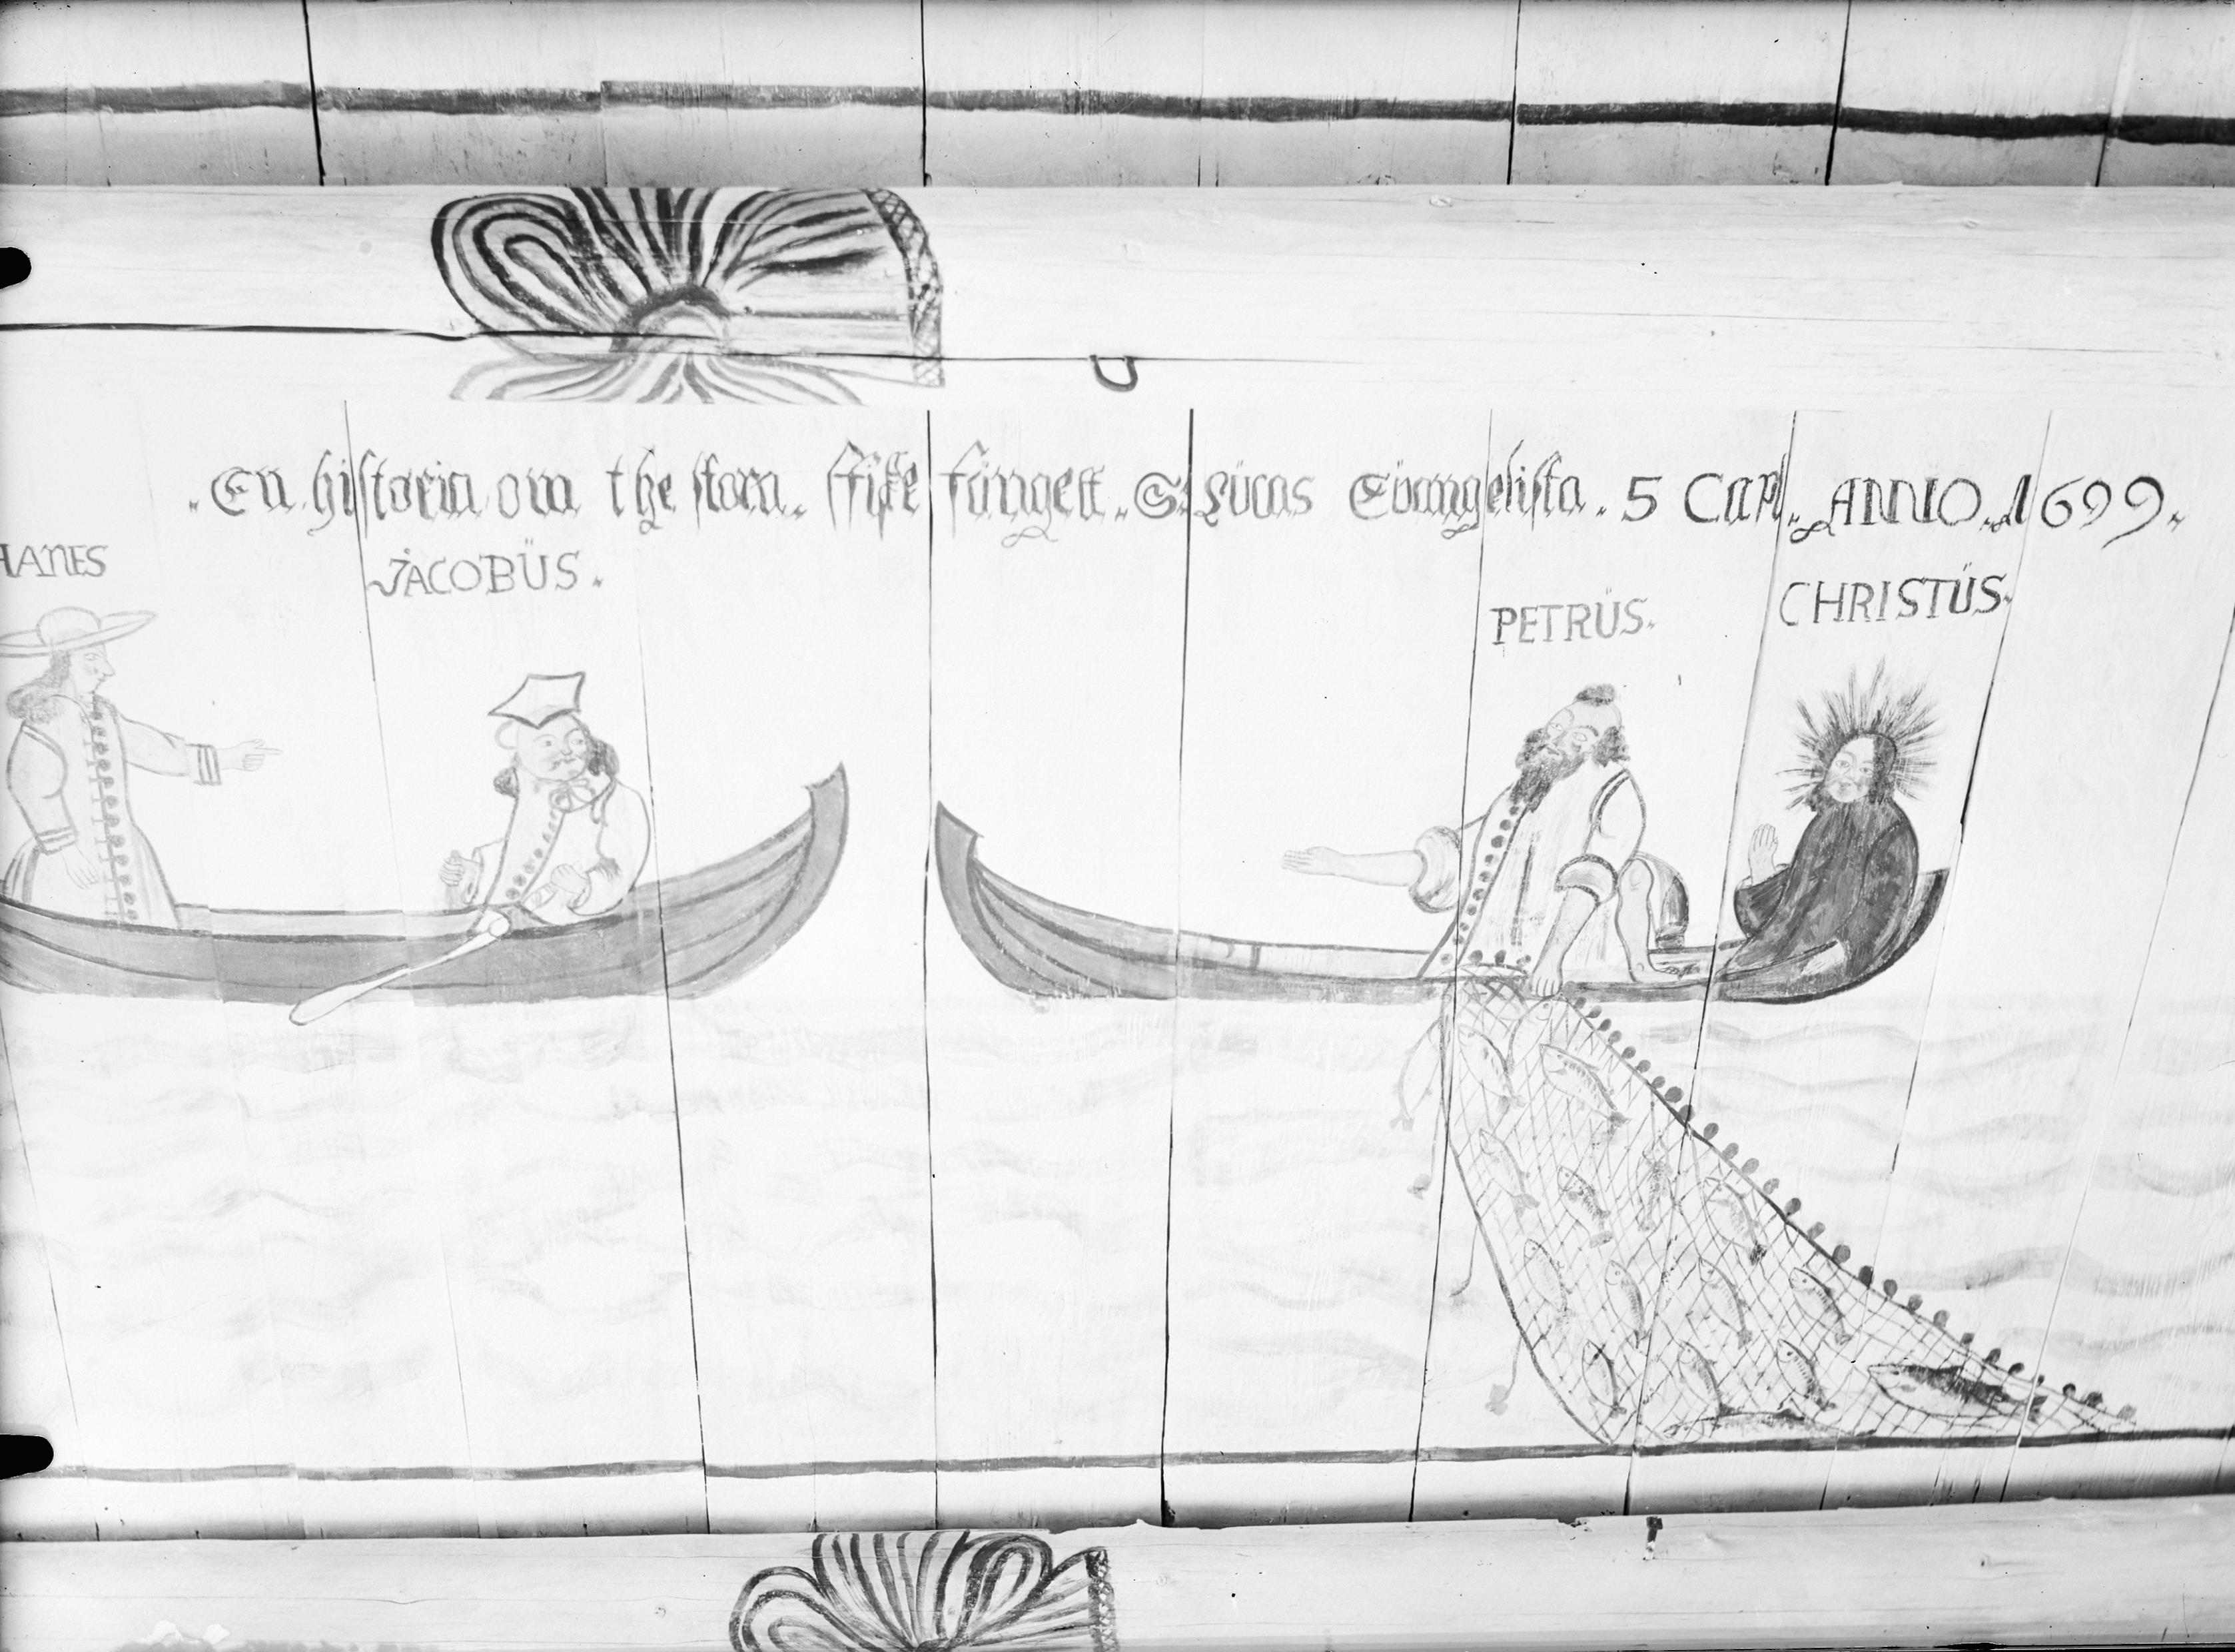 En historia om the stora. ffiske fünget. S. Lücas Evangelista. 5 Cap. ANNO. 1699.
HANES
JACOBÜS.
PETRÜS.
CHRISTÜS.